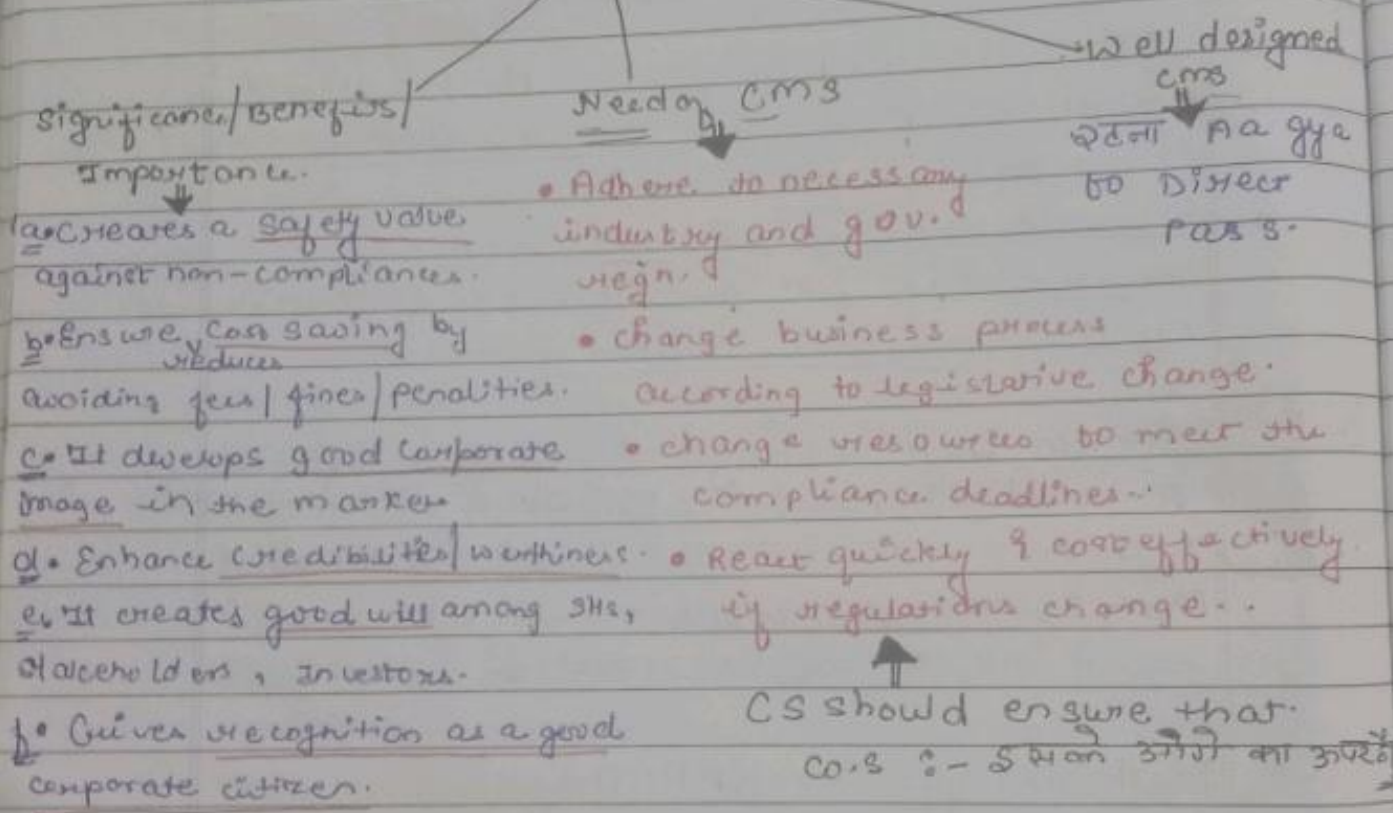 Significance/Benefits/
Importance.
a. Creates a safety valve
against non-compliances.
b. Ensure cost saving by
reduces
avoiding fees/fines/penalities.
c. It develops good Corporate
image in the market
d. Enhance credibilities/worthiness.
e. It creates good will among SHs,
stakeholders, Investors.
f. Gives recognition as a good
corporate citizen.
Need of CMS
• Adhere to necessary
industry and gov.
regn.
• change business process
according to legislative change.
• change resources to meet the
compliance deadlines..
• React quickly & cost effectively
if regulations change..
CS should ensure that.
co.s :- इसके का
Well designed
CMS
रटना Aa gya
to Direct
Pass.